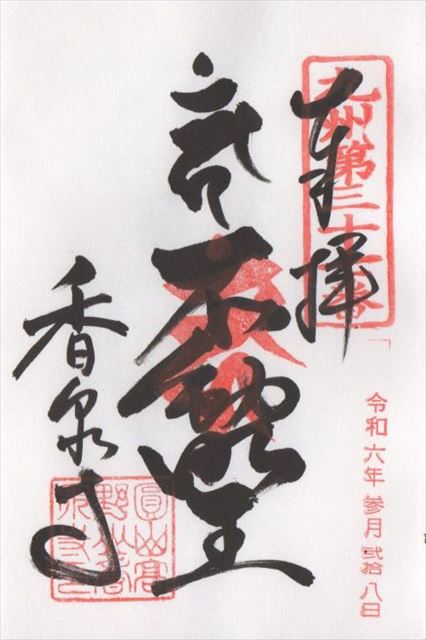 九州第三十番
奉拝
令和六年 参月 弐拾八日
不動明王
香泉寺